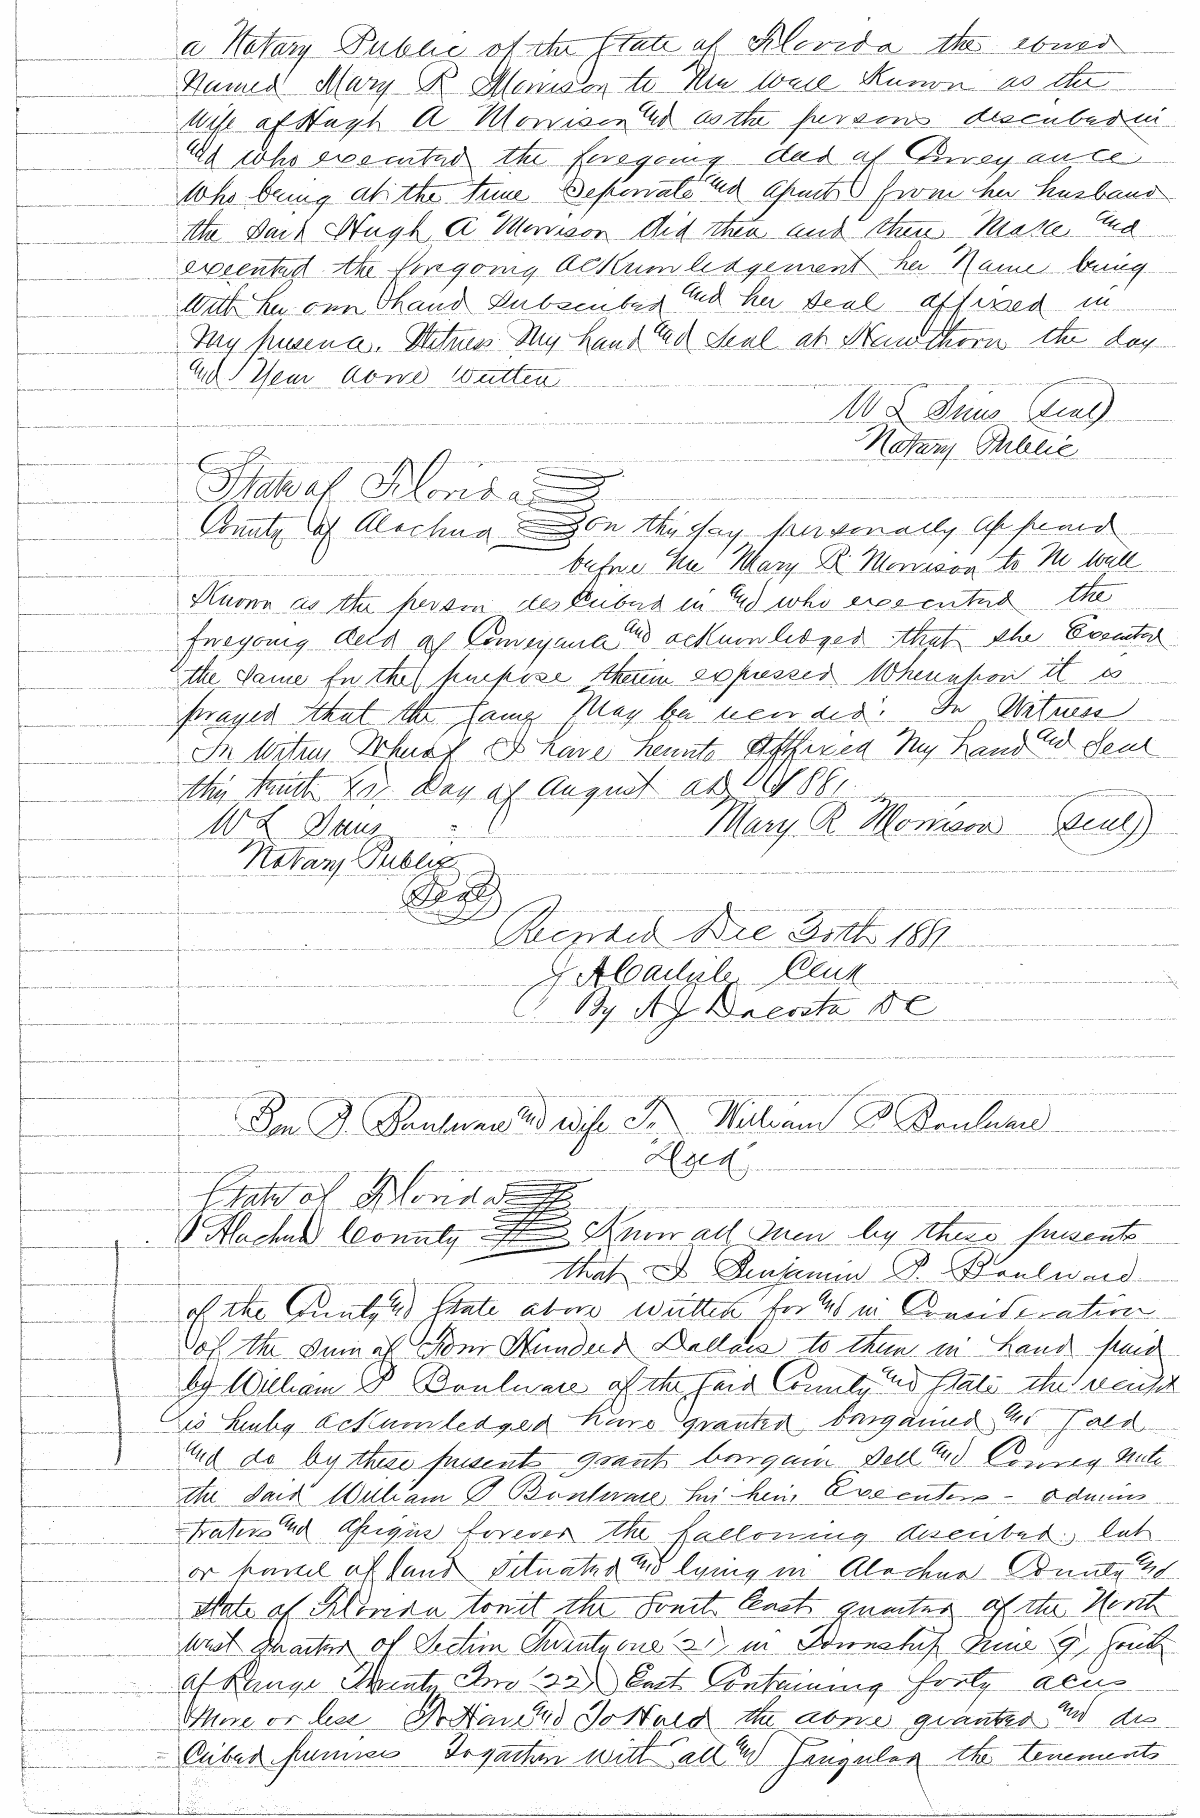 a Notary Public of the State of Florida the above
Named Mary R Morrison to Me well Known as the
Wife of Hugh A Morrison and as the persons described in
and who executed the foregoing deed of Conveyance
Who being at the time Seperate and apart from her husband
the Said Hugh A Morrison did then and there Make and
executed the foregoing acknowledgement her Name being
With her own hand Subscribed and her Seal affixed in
My presence. Witness My hand and Seal at Hawthorn the day
and Year above written
W L Sims (Seal)
Notary Public
State of Florida
County of Alachua On this day personally appeared
before me Mary R Morrison to Me well
Known as the person described in and who executed the
foregoing deed of Conveyance and acknowledged that she Executed
the Same for the purpose therein expressed Whereupon it is
prayed that the Same May be recorded. In Witness
In Witness Whereof I have hereunto Affixed My hand and Seal
this day of August AD 1881
W L Sims Mary R Morrison (Seal)
Notary Public
Seal
Recorded Dec 30th 1881
J A Carlisle Clerk
By A J Dacosta DC
Ben P. Boulware and wife To William P Boulware
"Deed"
State of Florida
Alachua County Know all men by these presents
that I Benjamin P. Boulware
of the County and State above written for and in Consideration
of the Sum of Four Hundred Dollars to them in hand paid
by William P Boulware of the Said County and State the receipt
is hereby acknowledged have granted bargained and Sold
and do by these presents grant bargain Sell and Convey unto
the Said William P Boulware his heirs Executors - adminis
trators and assigns forever the following described lot
or parcel of land situated and lying in Alachua County and
State of Florida towit the South East quarter of the North
West quarter of Section Twenty one 21, in Township Nine 9, South
of Range Twenty Two (22) East Containing forty acres
More or less To Have and To Hold the above granted and des
cribed premises Together with all and Singular the tenements